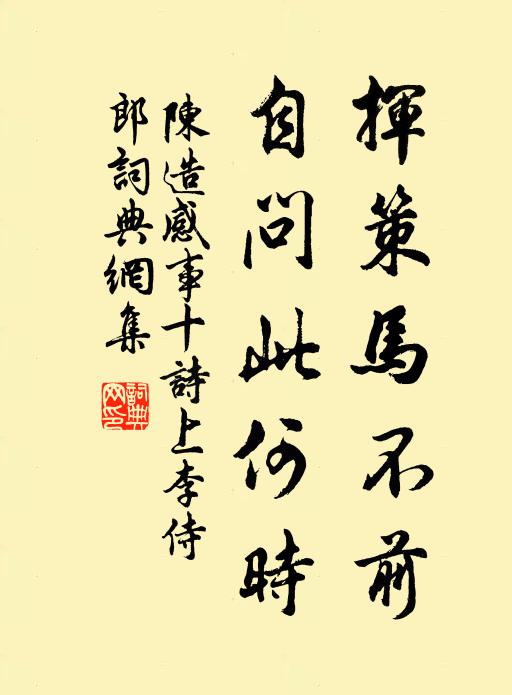 揮策馬不前
自問此何時
陳造感事十詩上李侍
郎詞典網集
詞典
网印